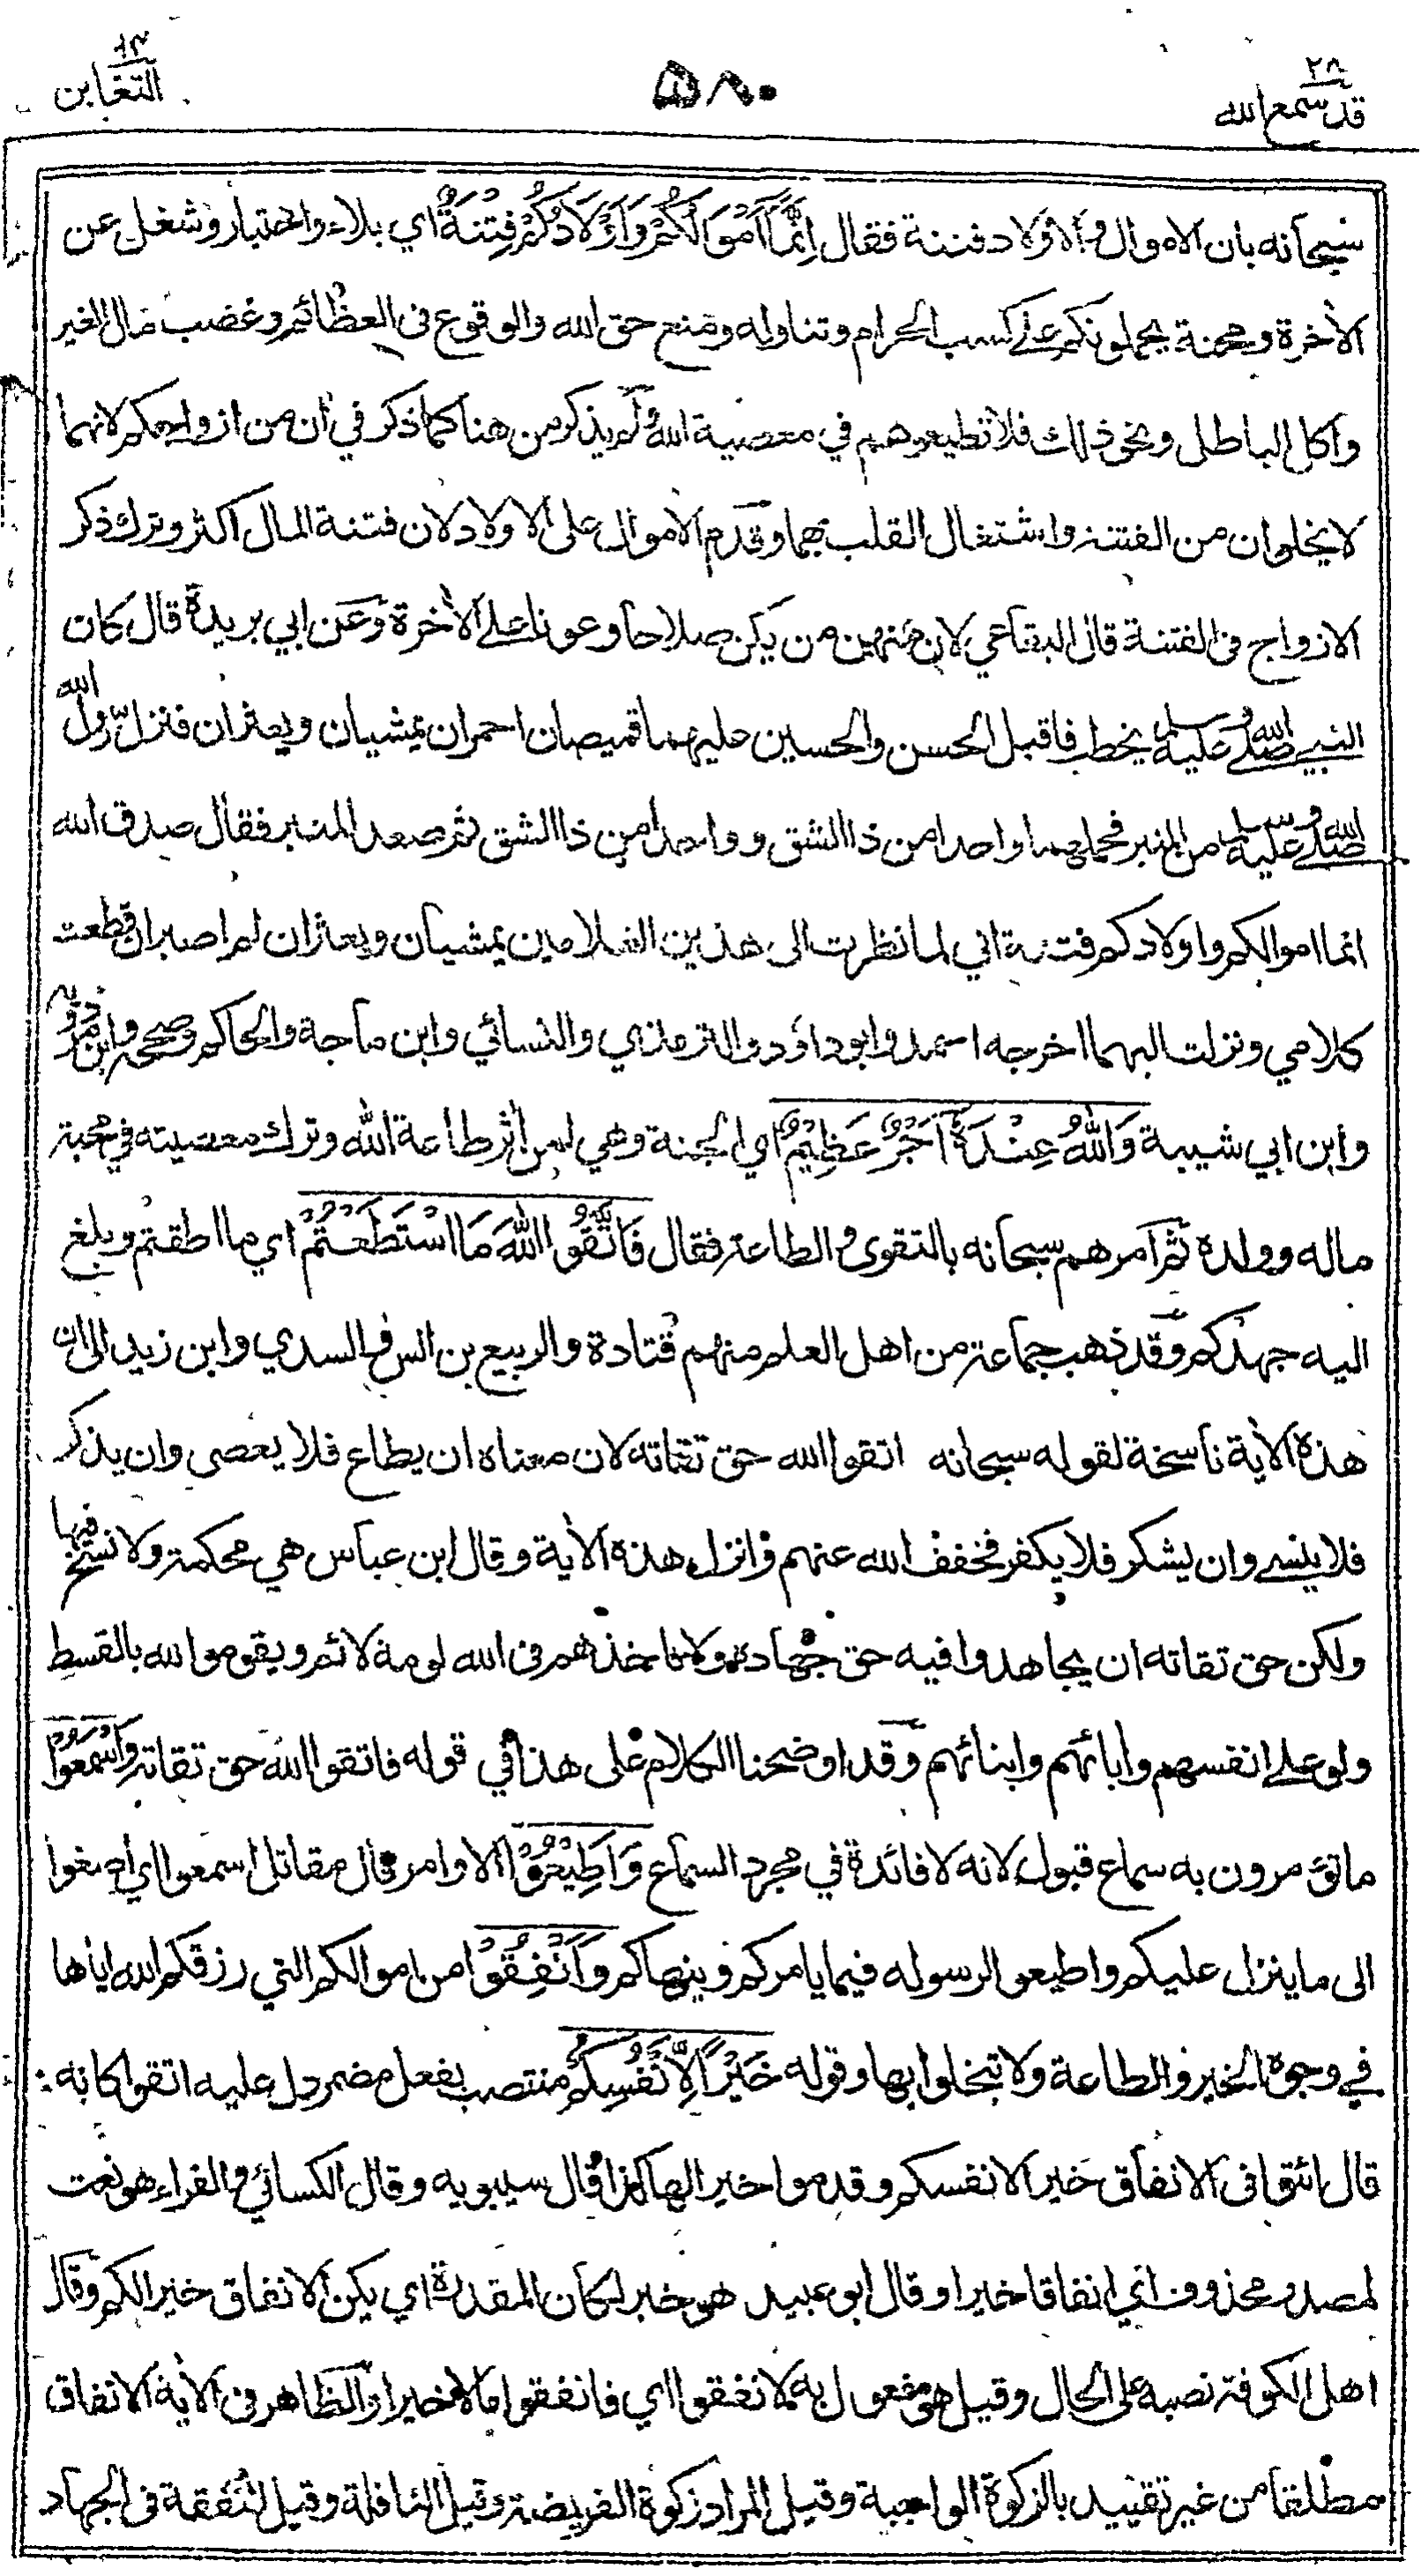 ٢٨
قد سمع الله
٥٨٠
٦٤
التغابن
سبحانه بان الاموال والاولاد فتنة فقال اِنَّمَآ اَمْوَالُكُمْ وَاَوْلَادُكُمْ فِتْنَةٌ اي بلاء واختبار وشغل عن
الأخرة ومحنة يحملونكم على كسب الحرام وتناوله ومنع حق الله والوقوع فى العظائم وغصب مال الغير
واكل الباطل ونحو ذلك فلا تطيعوهم في معصية الله ولم يذكر من هنا كما ذكر في ان من ازواجكم لانهما
لا يخلوان من الفتنة واشتغال القلب بهما وقدم الاموال على الاولاد لان فتنة المال اكثر وترك ذكر
الازواج فى الفتنة قال البقاعي لان منهن من يكن صلاحا وعونا على الأخرة وعن ابي بريدة قال كان
النبي صلى الله عليه وسلم يخطب فاقبل الحسن والحسين عليهما قميصان احمران يمشيان ويعثران فنزل رسول الله
صلى الله عليه وسلم من المنبر فحملهما واحدا من ذا الشق وواحدا من ذا الشق ثم صعد المنبر فقال صدق الله
انما اموالكم واولادكم فتنة اني لما نظرت الى هذين الغلامين يمشيان ويعثران لم اصبر ان قطعت
كلامي ونزلت اليهما اخرجه احمد وابو داؤد والترمذي والنسائي وابن ماجة والحاكم وصححه وابن مردويه
وابن ابي شيبة وَاللّٰهُ عِنْدَهٗٓ اَجْرٌ عَظِيْمٌ اي الجنة وهي لمن أثر طاعة الله وترك معصيته في محبة
ماله وولده ثم امرهم سبحانه بالتقوى والطاعة فقال فَاتَّقُوا اللّٰهَ مَا اسْتَطَعْتُمْ اي ما اطقتم وبلغ
اليه جهدكم وقد ذهب جماعة من اهل العلم منهم قتادة والربيع بن انس والسدي وابن زيد الى ان
هذه الأية ناسخة لقوله سبحانه اتقوا الله حق تقاته لان معناه ان يطاع فلا يعصى وان يذكر
فلا ينسى وان يشكر فلا يكفر فخفف الله عنهم وانزل هذه الأية وقال ابن عباس هي محكمة ولا نسخ فيها
ولكن حق تقاته ان يجاهدوا فيه حق جهاده ولا تاخذهم فى الله لومة لائم ويقوموا لله بالقسط
ولو على انفسهم وأبائهم وابنائهم وقد اوضحنا الكلام على هذا في قوله فاتقوا الله حق تقاته وَاسْمَعُوْا
ما تؤمرون به سماع قبول لانه لا فائدة في مجرد السماع وَاَطِيْعُوْا الاوامر قال مقاتل اسمعوا اي اصغوا
الى ما ينزل عليكم واطيعوا لرسوله فيما يامركم وينهاكم وَاَنْفِقُوْا من اموالكم التي رزقكم الله اياها
في وجوه الخير والطاعة ولا تبخلوا بها وقوله خَيْرًا لِّاَنْفُسِكُمْ منتصب بفعل مضمر دل عليه اتقوا كانه
قال ائتوا فى الانفاق خيرا لانفسكم وقدموا خيرا لها كذا قال سيبويه وقال الكسائي والفراء هو نعت
لمصدر محذوف اي انفاقا خيرا وقال ابو عبيد هو خبر لكان المقدرة اي يكن الانفاق خيرا لكم وقال
اهل الكوفة نصبه على الحال وقيل هو مفعول به لانفقوا اي فانفقوا مالا خيرا والظاهر فى الأية الانفاق
مطلقا من غير تقييد بالزكوة الواجبة وقيل المراد زكوة الفريضة وقيل النافلة وقيل النفقة فى الجهاد